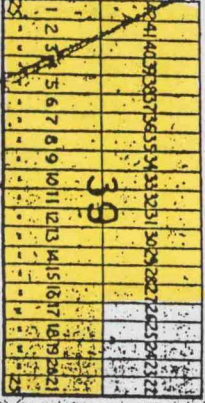 41 40 39 38 37 36 35 34 33 32 31 30 29 28 27 26 25 24 23 22
39
1 2 3 5 6 7 8 9 10 11 12 13 14 15 16 17 18 19 20 21
25